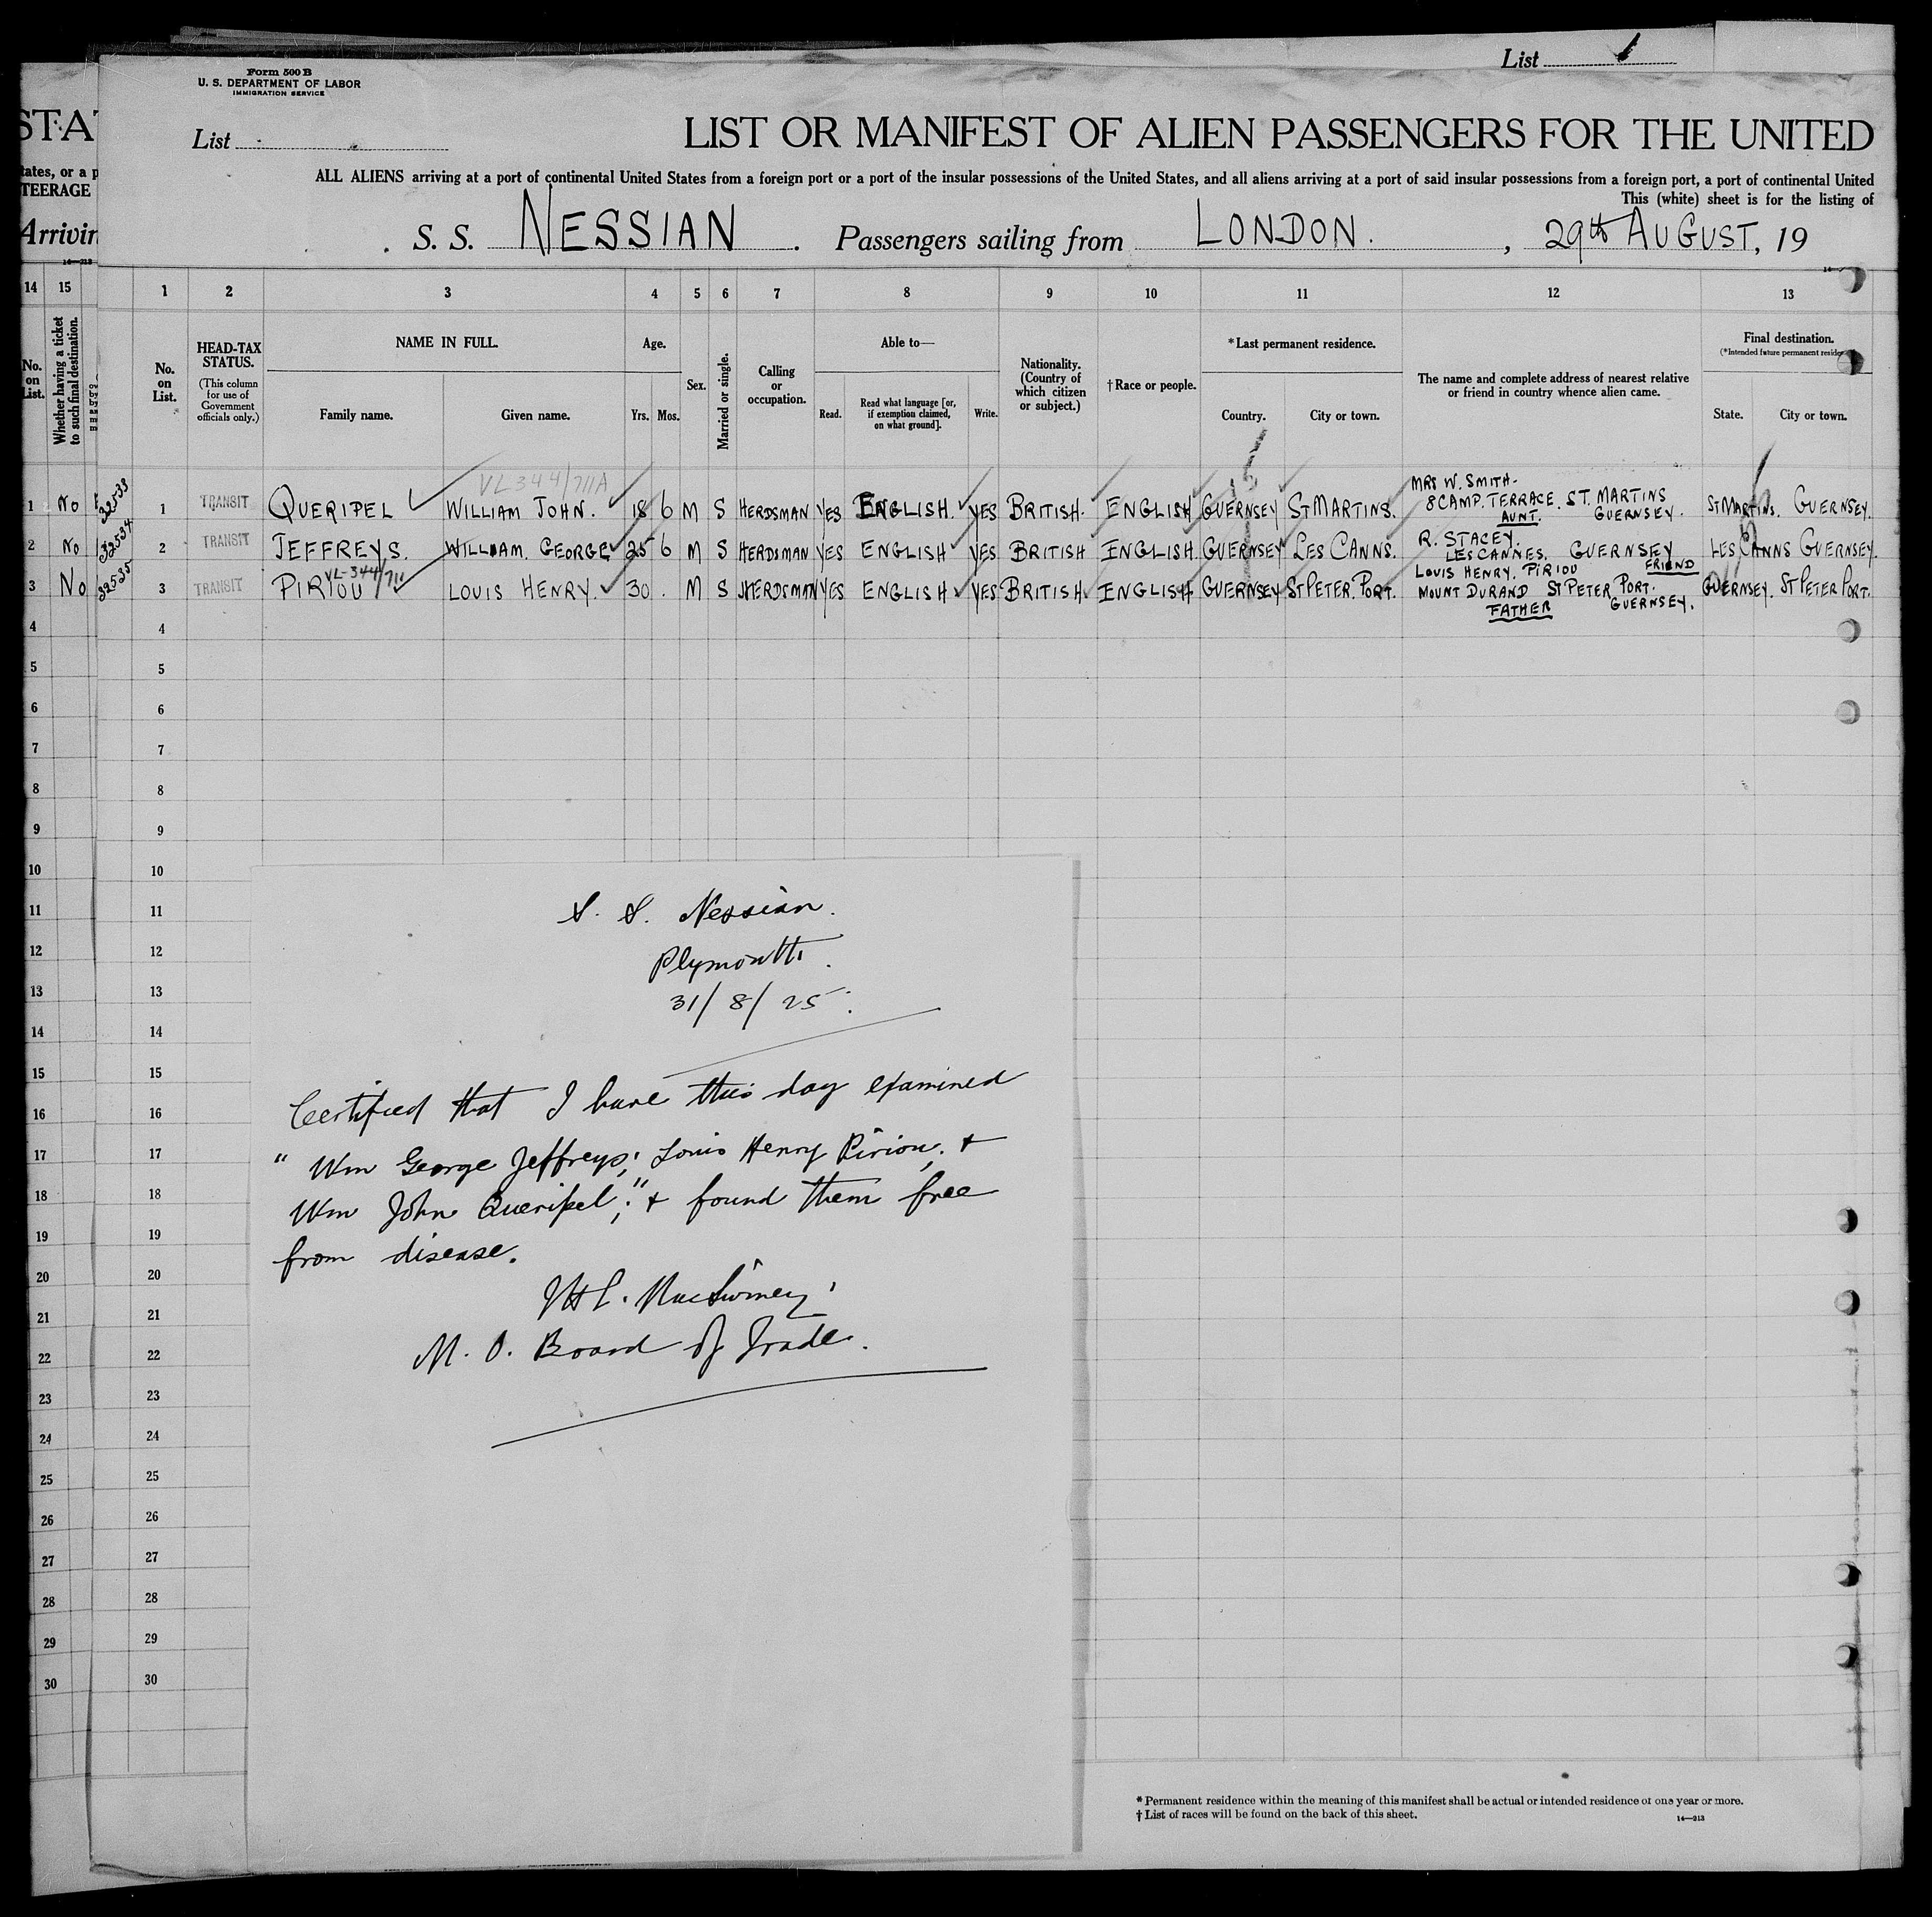 List
Form 500 B
U. S. DEPARTMENT OF LABOR
IMMIGRATION SERVICE
List
LIST OR MANIFEST OF ALIEN PASSENGERS FOR THE UNITED
ALL ALIENS arriving at a port of continental United States from a foreign port or a port of the insular possessions of the United States, and all aliens arriving at a port of said insular possessions from a foreign port, a port of continental United
This (white) sheet is for the listing of
S. S. NESSIAN. Passengers sailing from LONDON. , 29th AUGUST, 19
STAT
tates, or a p
TEERAGE
Arrivin
14—213
14 15 1 2 3 4 5 6 7 8 9 10 11 12 13
No. on List.
Whether having a ticket to such final destination.
No. on List.
HEAD-TAX STATUS.
(This column for use of Government officials only.)
NAME IN FULL.
Family name. Given name.
Age.
Yrs. Mos.
Sex.
Married or single.
Calling or occupation.
Able to—
Read. Read what language [or, if exemption claimed, on what ground]. Write.
Nationality. (Country of which citizen or subject.)
† Race or people.
* Last permanent residence.
Country. City or town.
The name and complete address of nearest relative or friend in country whence alien came.
Final destination.
(*Intended future permanent reside
State. City or town.
VL344/711A
1 No 32533 1 TRANSIT QUERIPEL WILLIAM JOHN. 18 6 M S HERDSMAN YES ENGLISH. YES BRITISH. ENGLISH GUERNSEY ST MARTINS. MRS W. SMITH. 8 CAMP. TERRACE. ST. MARTINS GUERNSEY. AUNT. ST MARTINS. GUERNSEY.
2 No 32534 2 TRANSIT JEFFREYS. WILLIAM. GEORGE 25 6 M S HERDSMAN YES ENGLISH YES BRITISH ENGLISH GUERNSEY LES CANNS. R. STACEY. LES CANNES. GUERNSEY FRIEND LES CANNS GUERNSEY.
VL-344/711
3 No 32535 3 TRANSIT PIRIOU LOUIS HENRY. 30 . M S HERDSMAN YES ENGLISH YES BRITISH ENGLISH GUERNSEY ST PETER. PORT. LOUIS HENRY. PIRIOU MOUNT DURAND ST PETER PORT. GUERNSEY. FATHER GUERNSEY. ST PETER PORT.
4 4
5 5
6 6
7 7
8 8
9 9
10 10
11 11
12 12
13 13
14 14
15 15
16 16
17 17
18 18
19 19
20 20
21 21
22 22
23 23
24 24
25 25
26 26
27 27
28 28
29 29
30 30
S. S. Nessian.
Plymouth.
31/8/25.
Certified that I have this day examined
"Wm George Jeffreys; Louis Henry Piriou, &
Wm John Queripel;" & found them free
from disease.
MacSwiney
M. O. Board of Trade.
* Permanent residence within the meaning of this manifest shall be actual or intended residence of one year or more.
† List of races will be found on the back of this sheet.
14—213